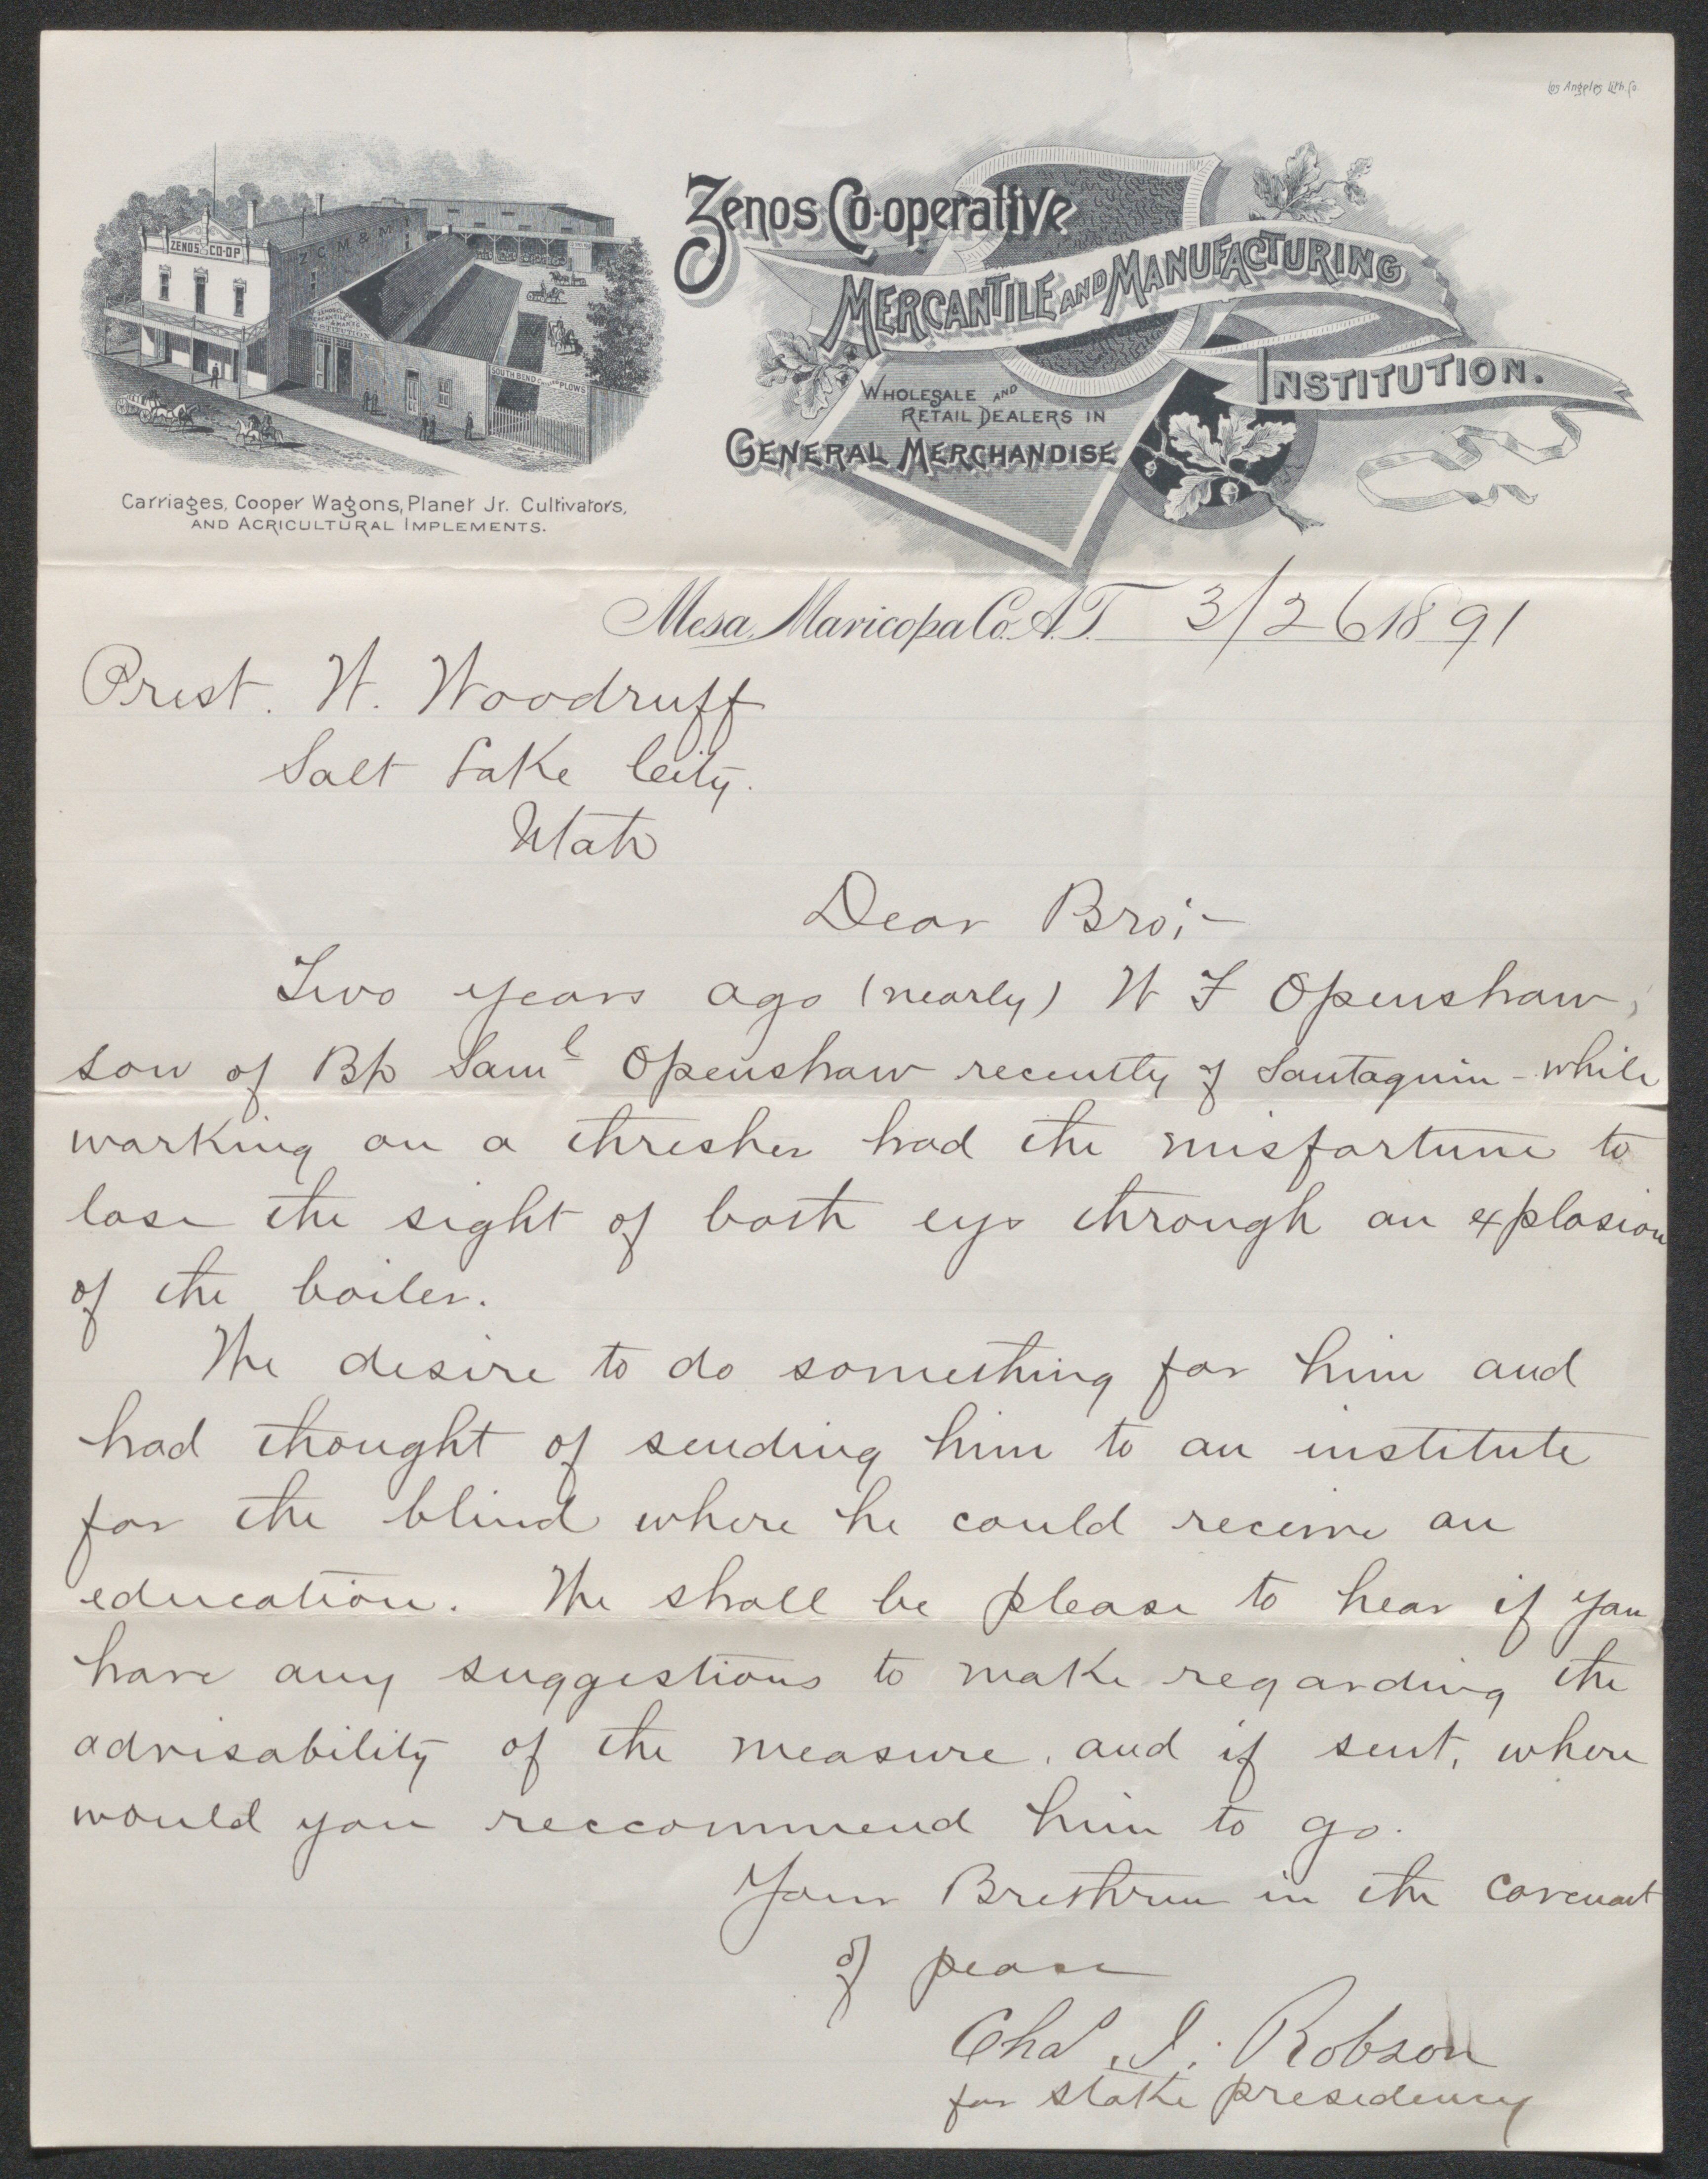 Los Angeles Lith. Co.
Zenos Co-operative
Mercantile and Manufacturing
Institution.
Wholesale and
Retail Dealers in
General Merchandise
ZENOS CO-OP
Z. C. M. & M.
ZENOS CO.
MERCANTILE
& MANFG
INSTITUTION
SOUTH BEND CHILLED PLOWS
Carriages, Cooper Wagons, Planet Jr. Cultivators,
and Agricultural Implements.
Mesa, Maricopa Co. A.T. 3/26 1891
Prest. W. Woodruff
Salt Lake City.
Utah
Dear Bro;-
Two years ago (nearly) W F Openshaw,
son of Bp Saml Openshaw recently of Santaquin - while
working on a thresher had the misfortune to
lose the sight of both eys through an explosion
of the boiler.
We desire to do something for him and
had thought of sending him to an institute
for the blind where he could receive an
education. We shall be please to hear if you
have any suggestions to make regarding the
advisability of the measure, and if sent, where
would you reccommend him to go.
Your Brethren in the Covenant
of peace
Chas. I. Robson
for stake presidency